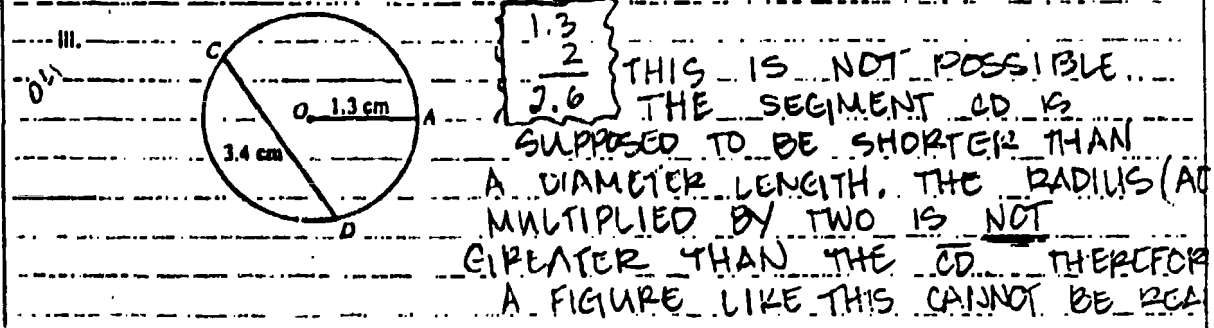 III.
C
O
1.3 cm
A
3.4 cm
D
1.3
2
2.6
THIS IS NOT POSSIBLE.
THE SEGMENT CD IS
SUPPOSED TO BE SHORTER THAN
A DIAMETER LENGTH. THE RADIUS (AO
MULTIPLIED BY TWO IS NOT
GREATER THAN THE CD THEREFOR
A FIGURE LIKE THIS CANNOT BE REA